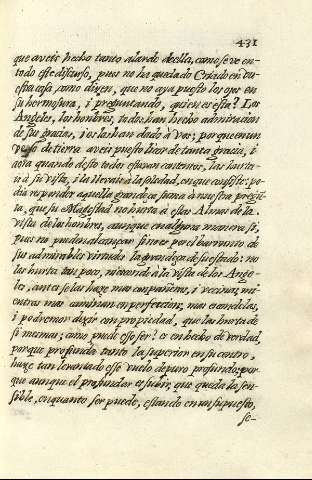 431
que aveis hecho tanto alarde de ella, como se ve en
todo este discurso, pues no ha quedado Criado en vu
estra casa como dizen, que no aya puesto los ojos en
su hermosura, i preguntando, quien es esta? Los
Angeles, los hombres, todos han hecho admiracion
de sus gracias, i os las han dado à vos; porque en un
poco de tierra aveis puesto licor de tanta gracia, i
aora quando desto todos estavan contentos, las hurta-
is à su vista, i la llevais à la soledad, en que consiste: po-
dia responder aquella grandeza suma à nuestra pregun
ta, que su Magestad no hurta à estas Almas de la
vista de los hombres, aunque en alguna manera si,
pues no pueden alcançar sino es por el barrunto de
sus admirables virtudes la grandeza de su estado: no
las hurta tan poco, ni esconde à la vista de los Ange-
les, antes se las haze mas compañeras, i vecinas, mi-
entras mas caminan en perfeccion, i mas cercanas,
i podremos dezir con propiedad, que las hurta de
si mismas; como puede esso ser? es en hecho de verdad,
porque profunda tanto la superior en su centro,
haze tan levantado esse vuelo de puro profundo; por
que aunque el profundar es subir, que queda lo sen-
sible, en quanto ser puede, estando en un supuesto,
se-